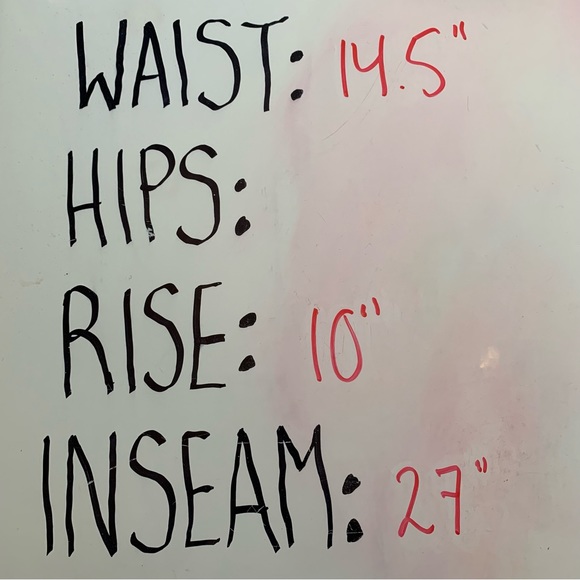 WAIST: 14.5"
HIPS:
RISE: 10"
INSEAM: 27"